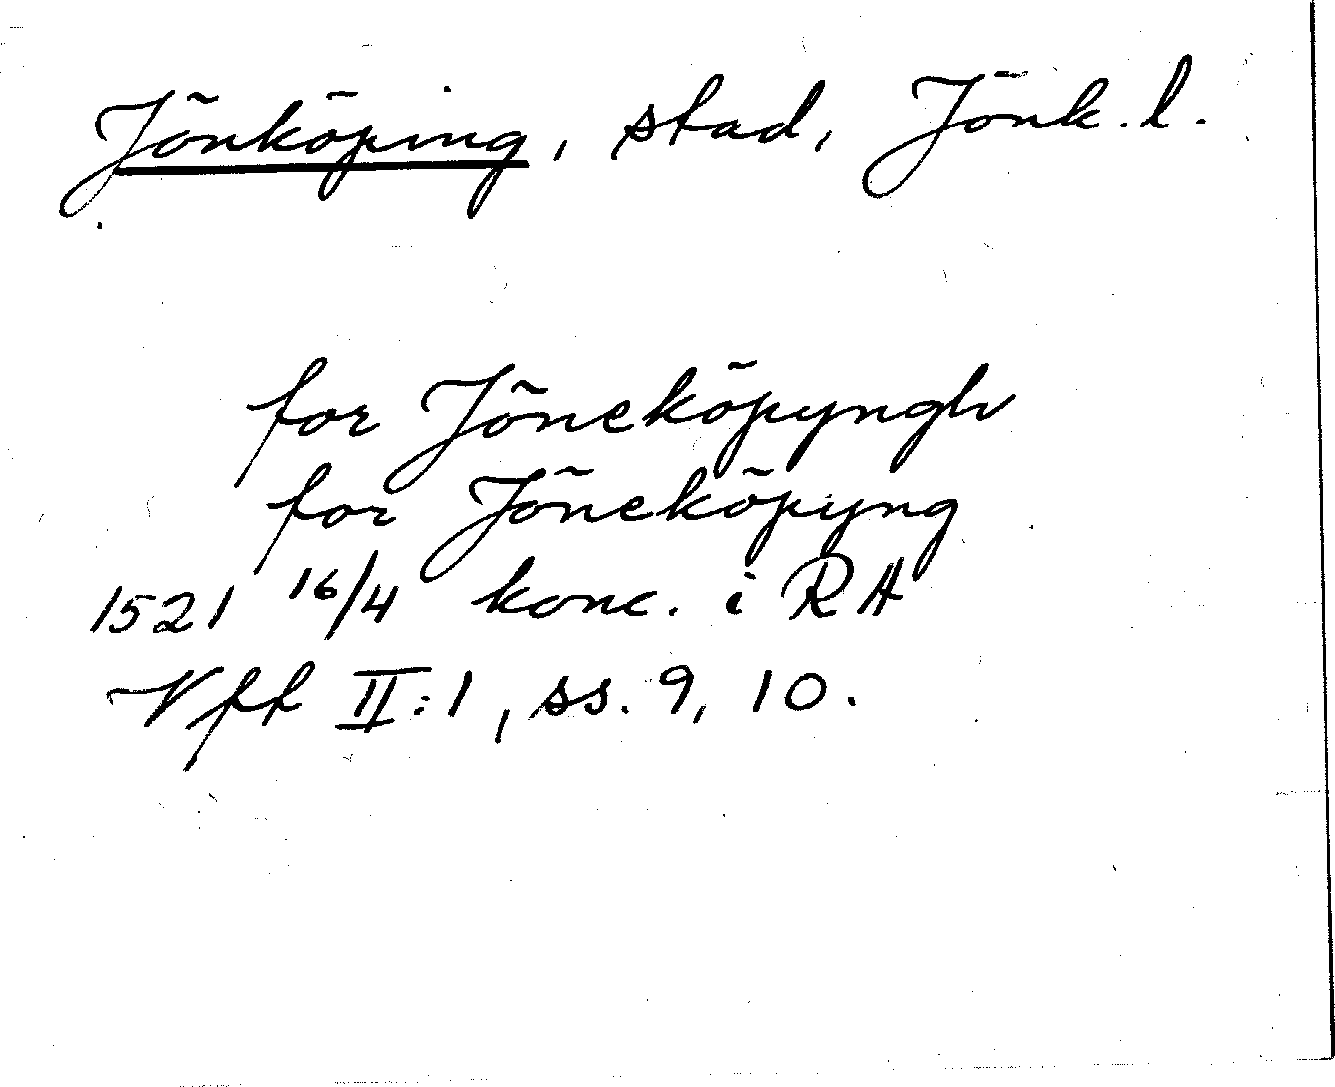 Jönköping, stad, Jönk. l.
for Jöneköpyngh
for Jöneköpyng
1521 16/4 konc. i RA
Vff II:1, ss. 9, 10.